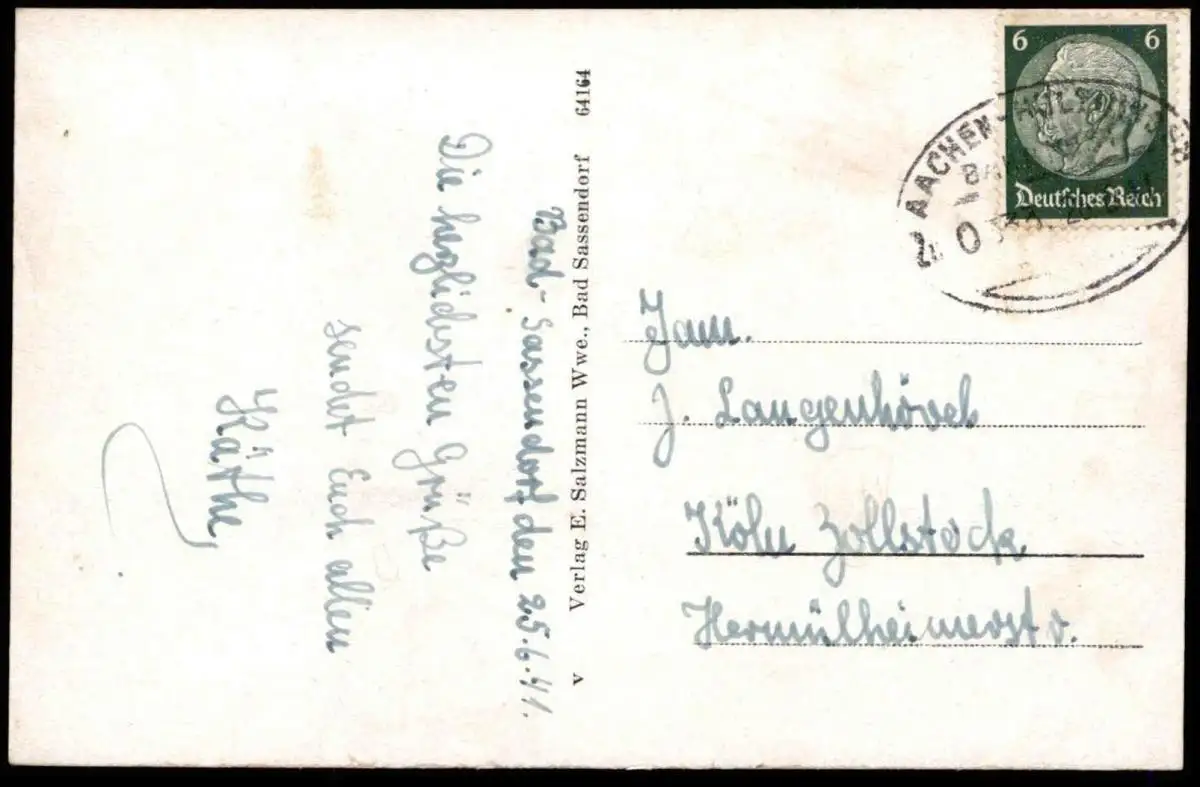 Bad-Sassendorf den 25.6.41.
Die herzlichsten Grüße
sendet Euch allen
Käthe,
v Verlag E. Salzmann Wwe., Bad Sassendorf 64164
6 6
Deutsches Reich
AACHEN
Fam.
J. Langenhövel
Köln Zollstock
Hermülheimerstr.